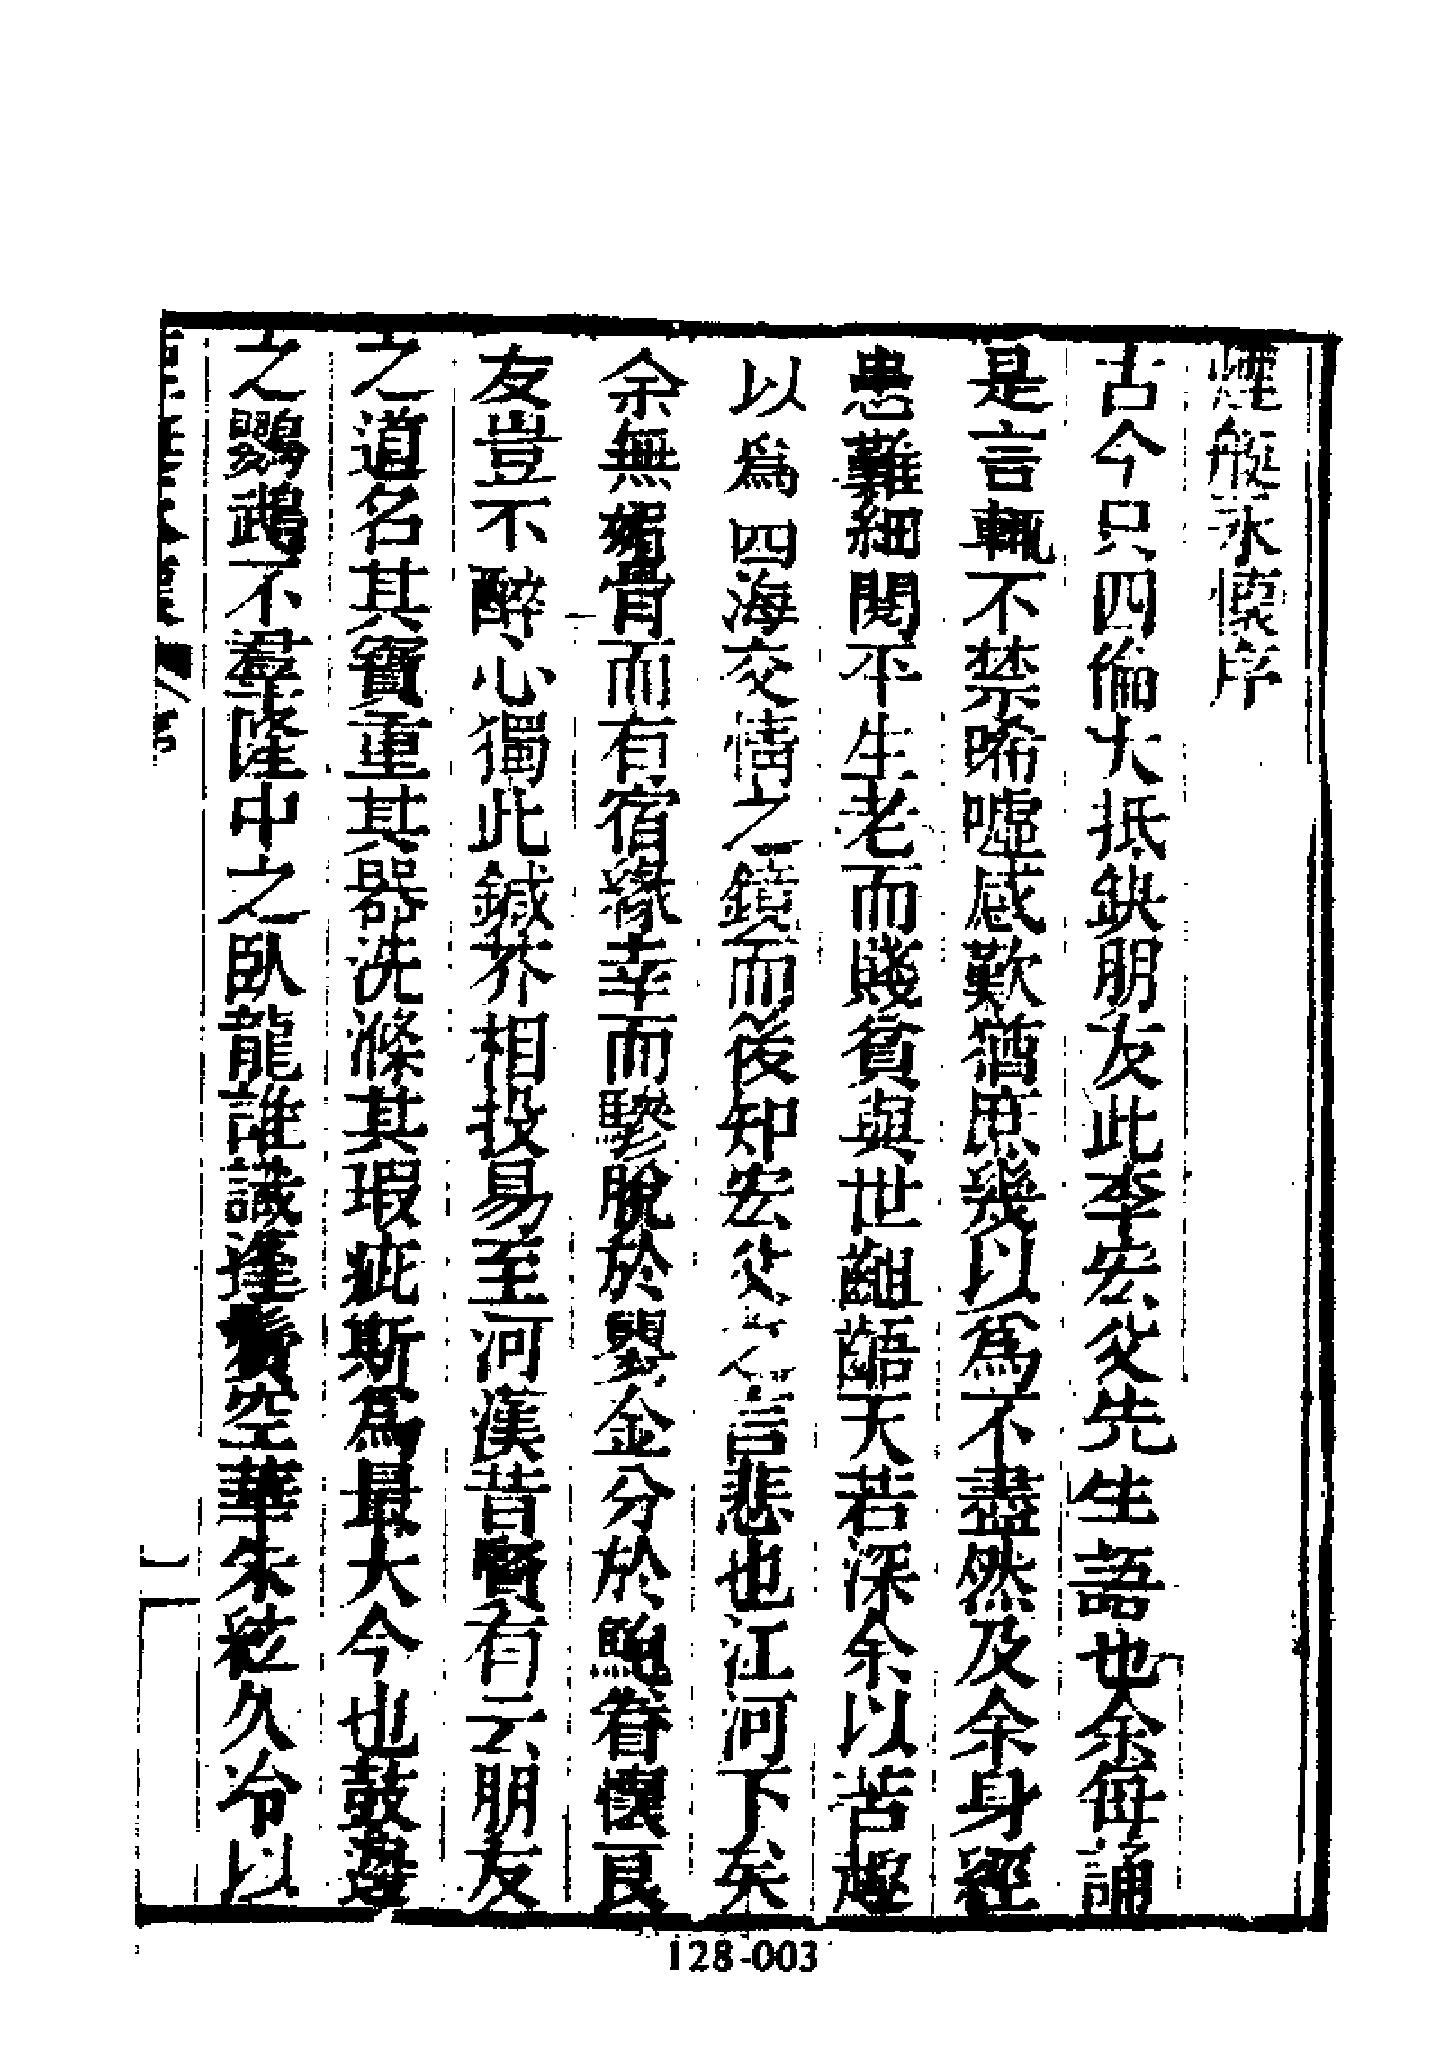 煙艇永懷序
古今只四倫大抵缺朋友此李宏父先生語也余每誦
是言輒不禁唏噓感歎猶庶幾以為不盡然及余身經
患難細閱平生老而賤貧與世齟齬天若深余以苦趣
以為四海交情之鏡而後知宏父之言悲也江河下矣
余無媚骨而有宿緣幸而驂脫於嬰金分於鮑眷懷良
友豈不醉心獨此鍼芥相投易至河漢昔賢有云朋友
之道名其寶重其器洗滌其瑕疵斯為最大今也鼓邊
之鸚鵡不羣隆中之臥龍誰識逢空華朱絃久冷以
128-003